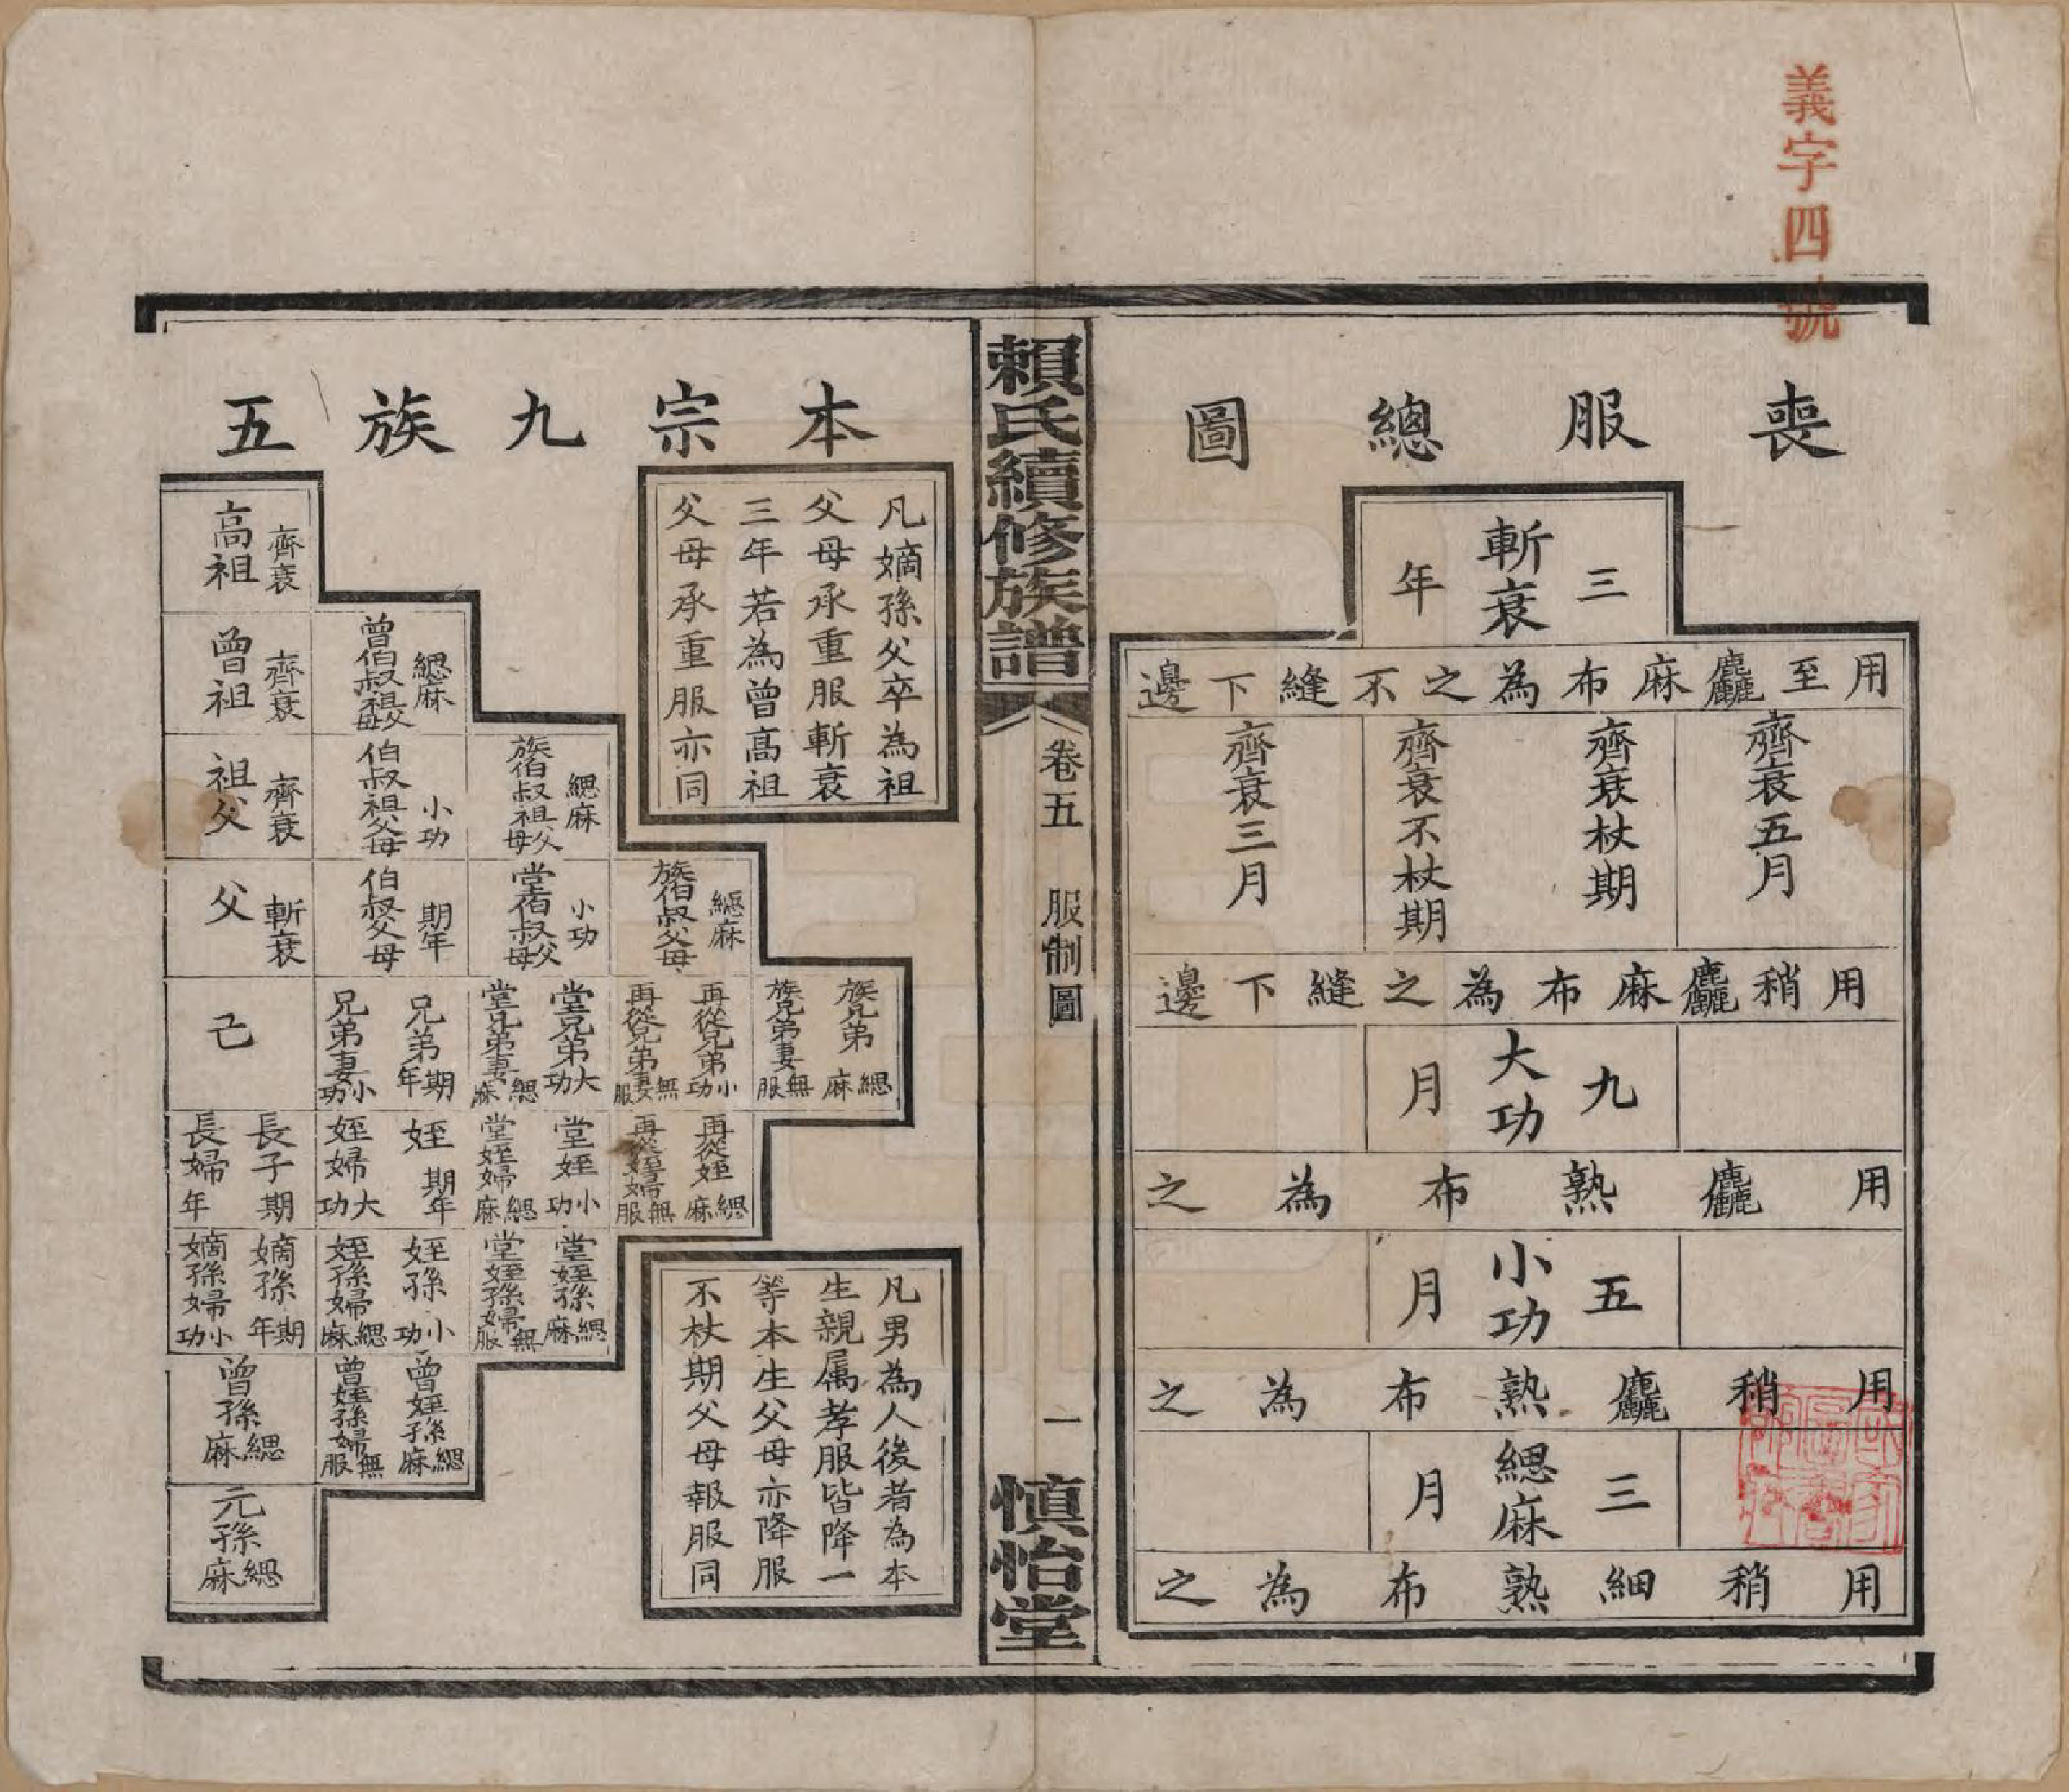 義字四號
喪服總圖
斬衰三年
用至麤麻布為之不縫下邊
齊衰五月
齊衰杖期
齊衰不杖期
齊衰三月
用稍麤麻布為之縫下邊
大功九月
用麤熟布為之
小功五月
用稍麤熟布為之
緦麻三月
用稍細熟布為之
賴氏續修族譜
卷五 服制圖
一
慎怡堂
本宗九族五
凡嫡孫父卒為祖
父母承重服斬衰
三年若為曾高祖
父母承重服亦同
齊衰 高祖
緦麻 曾伯叔祖父母
齊衰 曾祖
緦麻 族伯叔祖父母
小功 伯叔祖父母
齊衰 祖父
緦麻 族伯叔父母
小功 堂伯叔父母
期年 伯叔父母
斬衰 父
族兄弟 緦麻
族兄弟妻 無服
再從兄弟 小功
再從兄弟妻 無服
堂兄弟 大功
堂兄弟妻 緦麻
兄弟 期年
兄弟妻 小功
己
再從姪 緦麻
再從姪婦 無服
堂姪 小功
堂姪婦 緦麻
姪 期年
姪婦 大功
長子 期
長婦 年
堂姪孫 緦麻
堂姪孫婦 無服
姪孫 小功
姪孫婦 緦麻
嫡孫 期年
嫡孫婦 小功
曾姪孫 緦麻
曾姪孫婦 無服
曾孫 緦麻
元孫 緦麻
凡男為人後者為本
生親属孝服皆降一
等本生父母亦降服
不杖期父母報服同